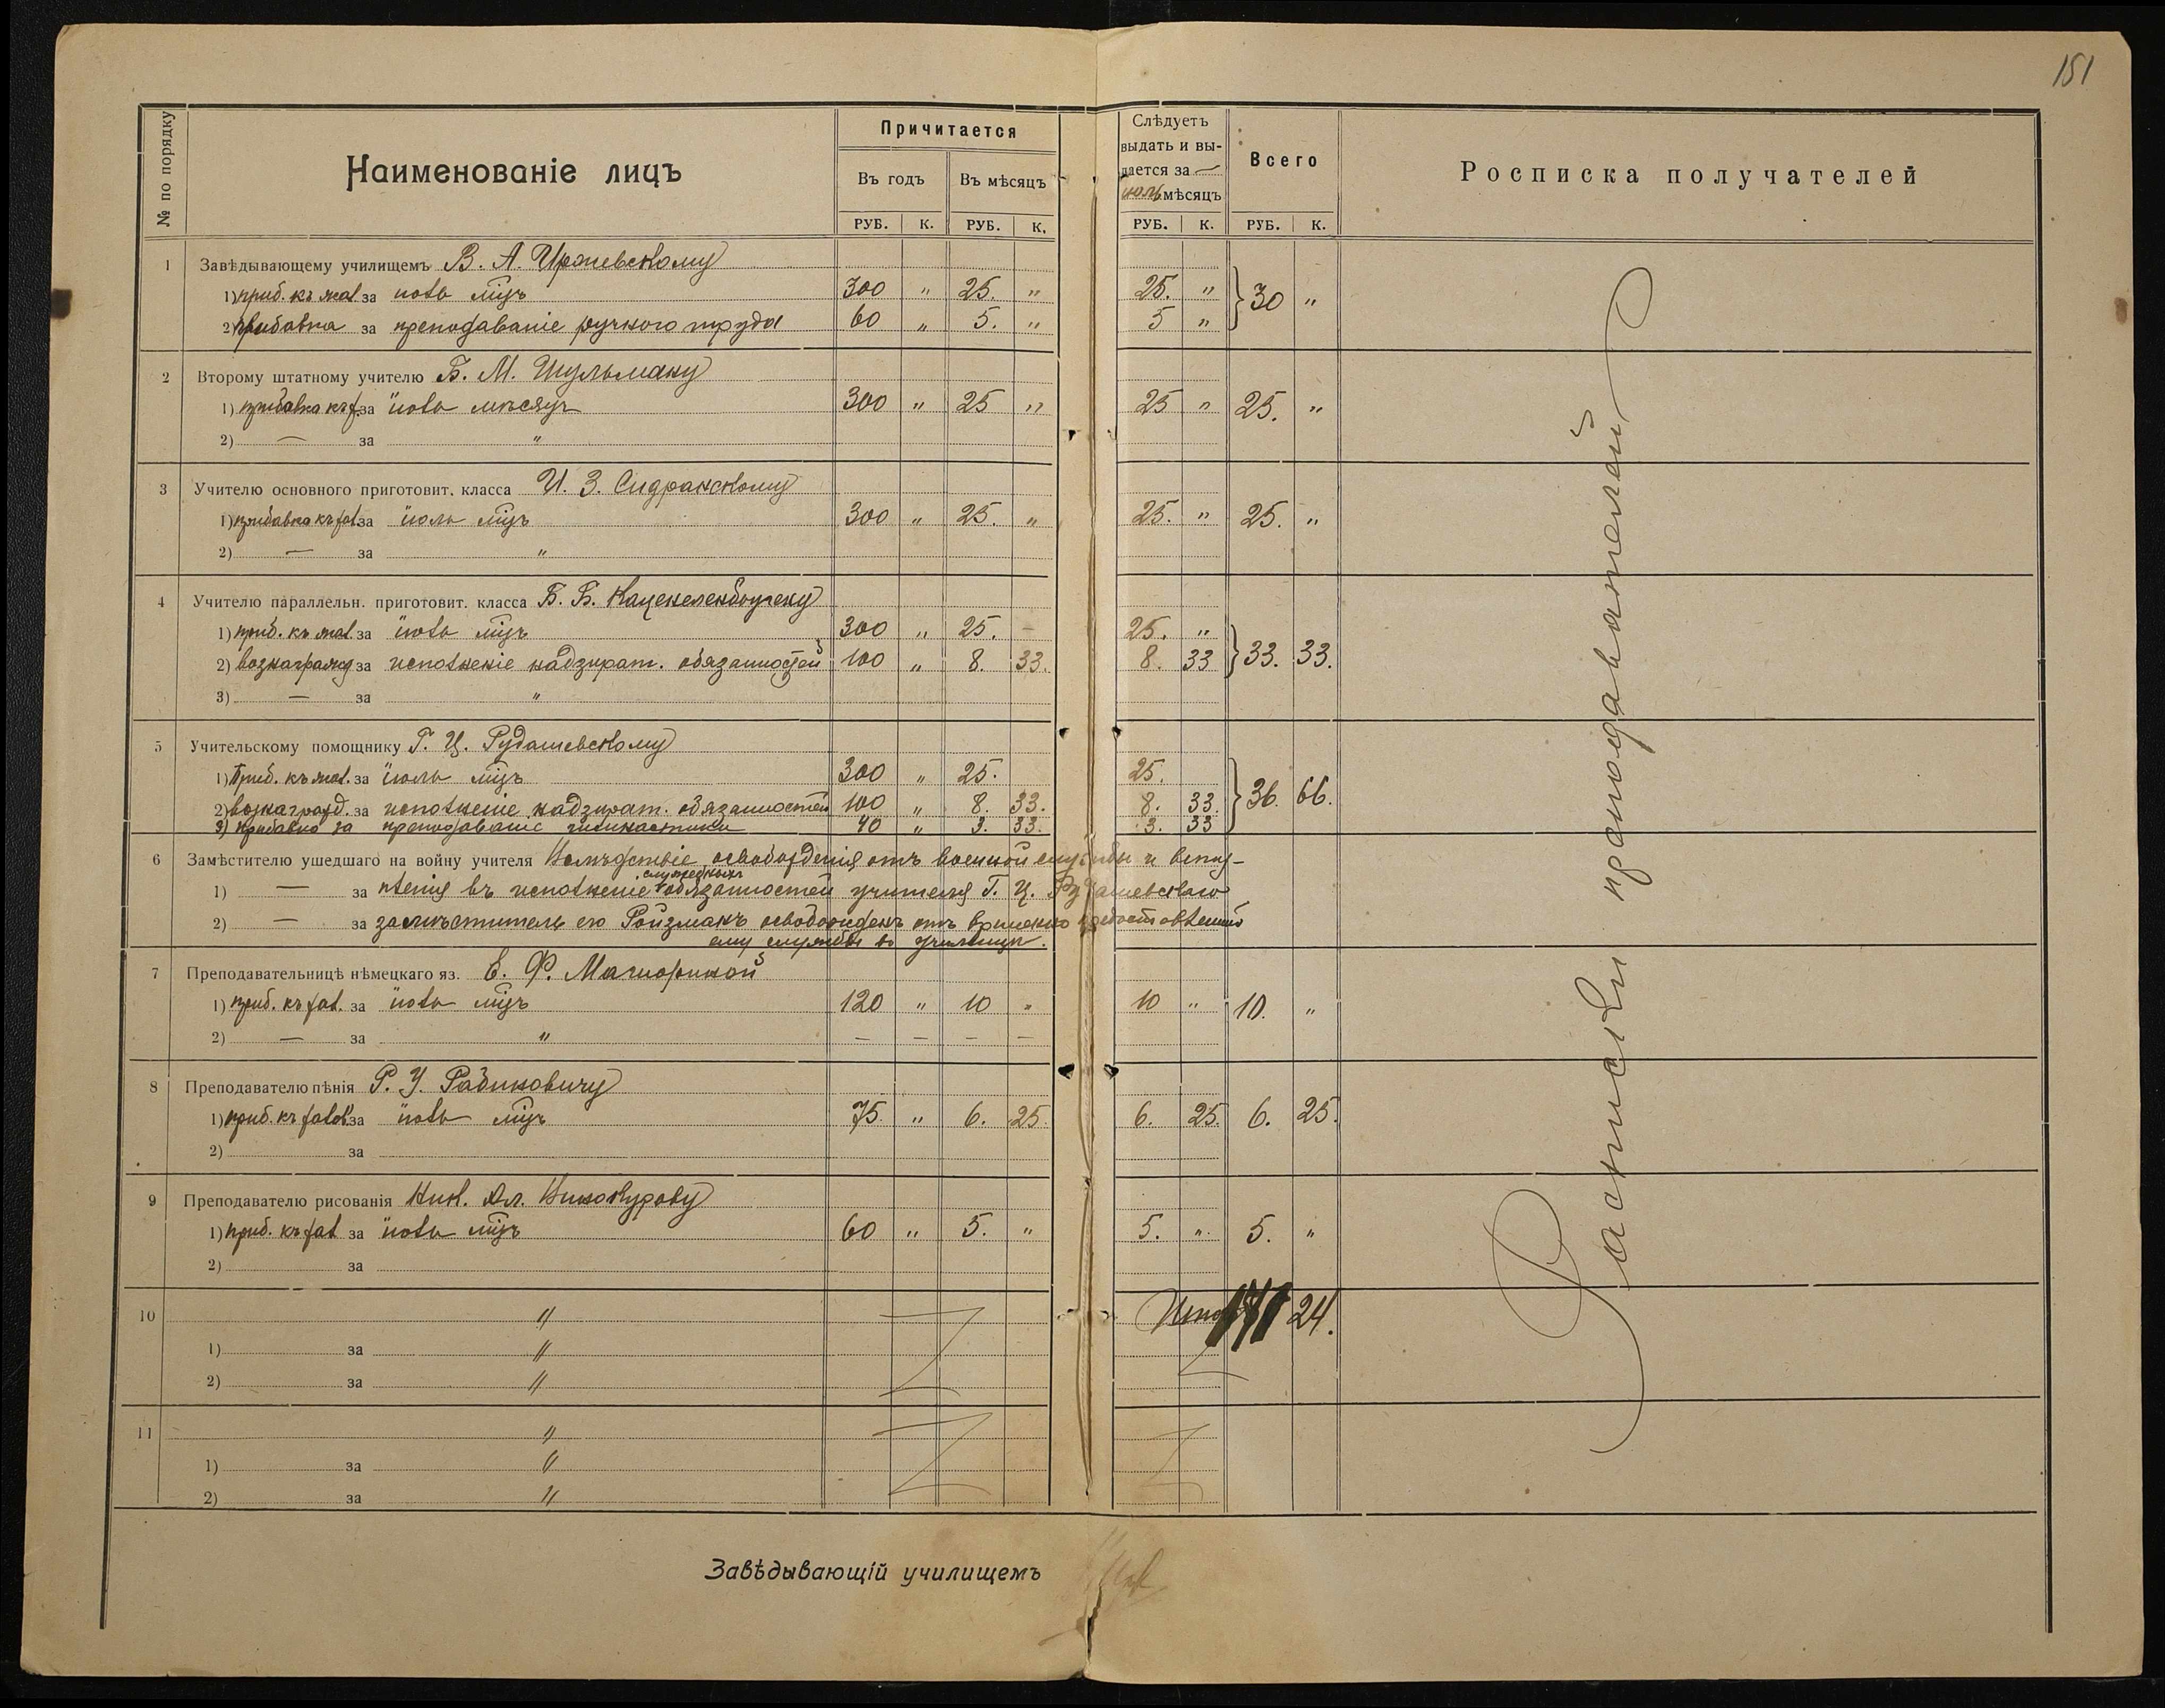 151
№ по порядку
Наименованіе лицъ
Причитается
Въ годъ
Въ мѣсяцъ
РУБ. К. РУБ. К.
Слѣдуетъ
выдать и вы-
дается за —
іюль мѣсяцъ
РУБ. К.
Всего
РУБ. К.
Росписка получателей
1 Завѣдывающему училищемъ В. А.
1) приб. къ жал. за іюль мѣц. 300 " 25. " 25. " } 30 "
2) прибавка за преподаваніе ручного труда 60 " 5. " 5 "
2 Второму штатному учителю Б. М. Шульману
1) прибавка къ ж. за іюль мѣсяцъ 300 " 25 " 25 " 25. "
2) — за "
3 Учителю основного приготовит. класса И. З. Сидранскому
1) прибавка къ жал. за іюль мѣц. 300 " 25. " 25. " 25. "
2) — за "
4 Учителю параллельн. приготовит. класса Б. Б. Каценеленбогену
1) приб. къ жал. за іюль мѣц. 300 " 25. — 25. " } 33. 33.
2) вознагражд за исполненіе надзират. обязанностей 100 " 8. 33. 8. 33
3) — за "
5 Учительскому помощнику Г. Ц. Рудашевскому
1) Приб. къ жал. за іюль мѣц. 300 " 25. 25. } 36. 66.
2) вознагражд. за исполненіе надзират. обязанностей 100 " 8. 33. 8. 33.
3) прибавка за преподаваніе гимнастики 40 " 3. 33. 3. 33
6 Замѣстителю ушедшаго на войну учителя Вслѣдствіе освобожденія отъ военной службы и вступ-
1) — за ленія въ исполненіе служебныхъ обязанностей учителя Г. Ц. Рудашевскаго
2) — за замѣститель его Ройзманъ освобожденъ отъ временно предоставленной
ему службы въ училищѣ.
7 Преподавательницѣ нѣмецкаго яз. Е. Ф.
1) приб. къ жал. за іюль мѣц. 120 " 10 " 10 " 10. "
2) — за " — — — —
8 Преподавателю пѣнія Р. У. Рабиновичу
1) приб. къ жалов. за іюль мѣц. 75 " 6. 25. 6. 25. 6. 25.
2) за
9 Преподавателю рисованія Ник. Ал. Винокурову
1) приб. къ жал за іюль мѣц. 60 " 5. " 5. " 5. "
2) за
10 " Итого 171 24.
1) за "
2) за "
11 "
1) за "
2) за "
Расписки преподавателей
Завѣдывающій училищемъ